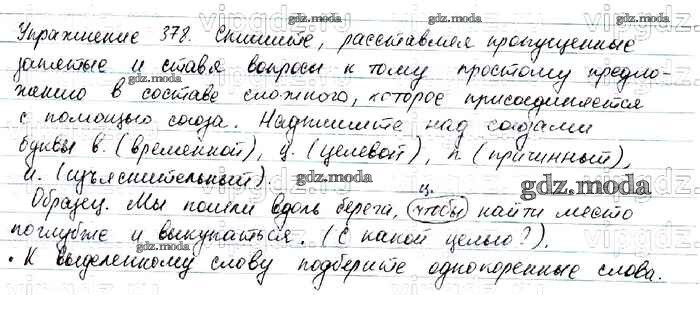 Упражнение 378. Спишите, расставляя пропущенные
запятые и ставя вопросы к тому простому предло-
жению в составе сложного, которое присоединяется
с помощью союза. Надпишите над союзами
буквы в. (временной), ц. (целевой), п (причинный),
и. (изъяснительный).
ц.
Образец. Мы пошли вдоль берега, чтобы найти место
поглубже и выкупаться. (С какой целью?).
• К выделенному слову подберите однокоренные слова.
gdz.moda